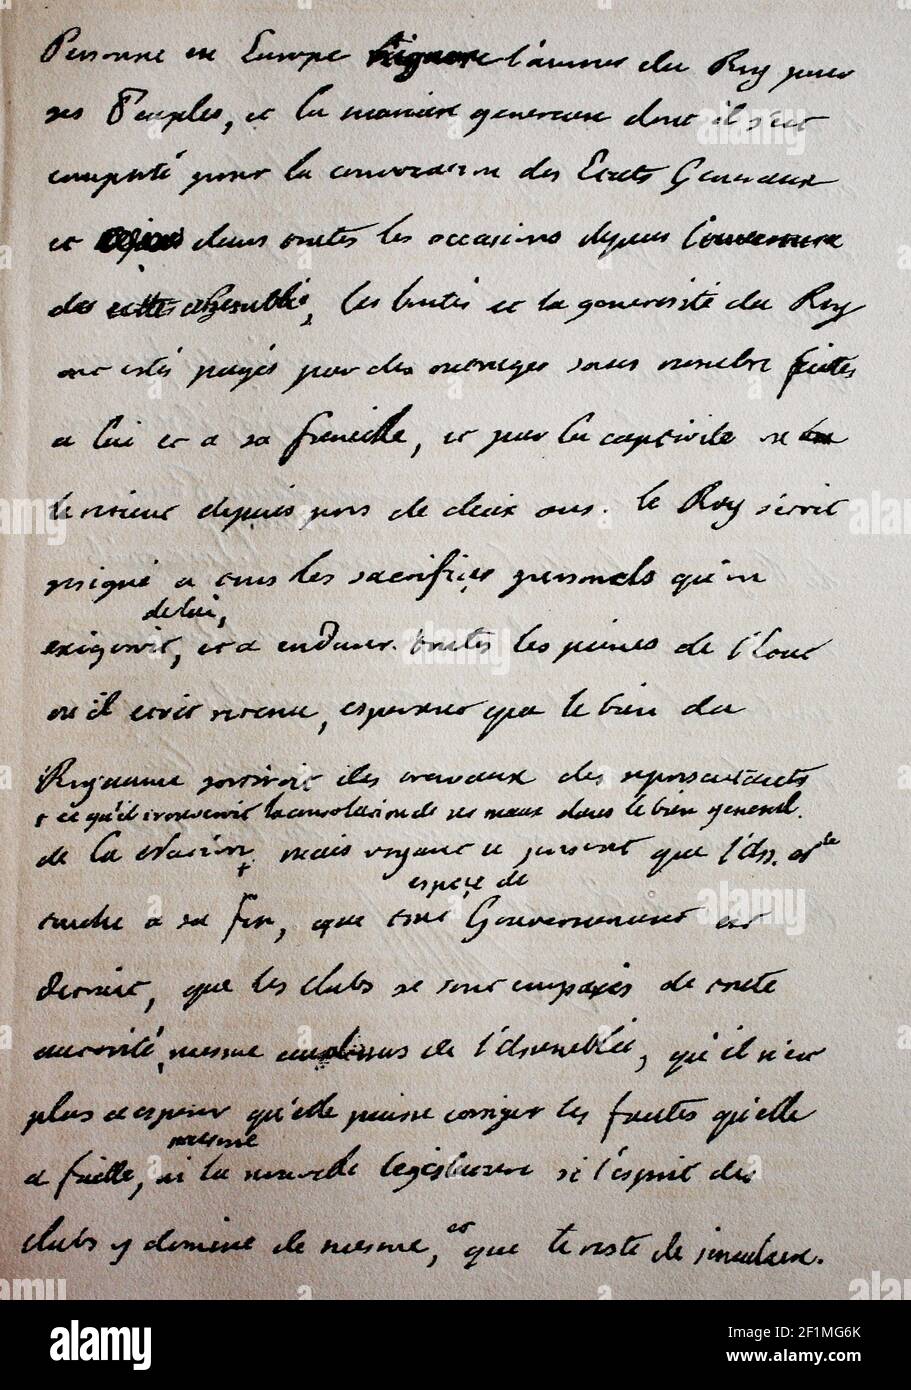 Personne en Europe n'ignore l'amour du Roy pour
ses Peuples, et la maniere genereuse dont il s'est
comporté pour la convocation des Etats Generaux
et dans toutes les occasions depuis l'ouverture
des cettes assemblée, les bontés et la generosité du Roy
ont estés payés par des outrages sans nombre faites
a lui et a sa famille, et par la captivite
le retient depuis près de deux ans. le Roy s'etoit
resigné a tous les sacrifices personels qu'on
de lui,
exigeroit, et a endurer toutes les peines de l'Etat
ou il etoit retenu, esperant que le bien du
Royaume sortiroit des travaux des representants
+ et qu'il trouveroit la consolation de ses maux dans le bien general.
de la Nation + mais voyant a present que l'Ass. Nle
espece de
touche a sa fin, que tout Gouvernement est
detruit, que les clubs se sont emparés de toute
autorité, mesme au dessus de l'Assemblée, qu'il n'est
plus a esperer qu'elle puisse corriger les fautes qu'elle
mesme
a faitte, ni la nouvelle législature si l'esprit des
clubs y domine de mesme, et que le reste de
alamy
Image ID: 2F1MG6K
www.alamy.com